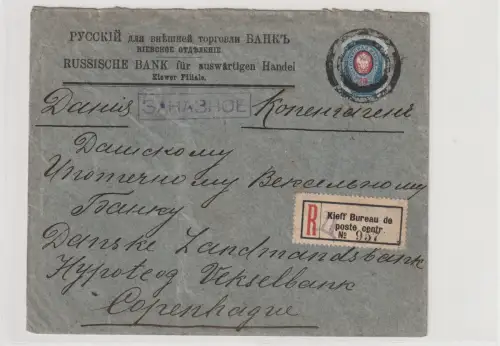 РУССКІЙ для внѣшней торговли БАНКЪ
КІЕВСКОЕ ОТДѢЛЕНІЕ
RUSSISCHE BANK für auswärtigen Handel
Kiewer Filiale.
Данія ЗАКАЗНОЕ Копенгагенъ
Датскому
Ипотечному Вексельному
Банку
Danske Landmandsbank
Hypoteog Vekselbank
Copenhague
R Kieff Bureau de
poste centr.
№ 957